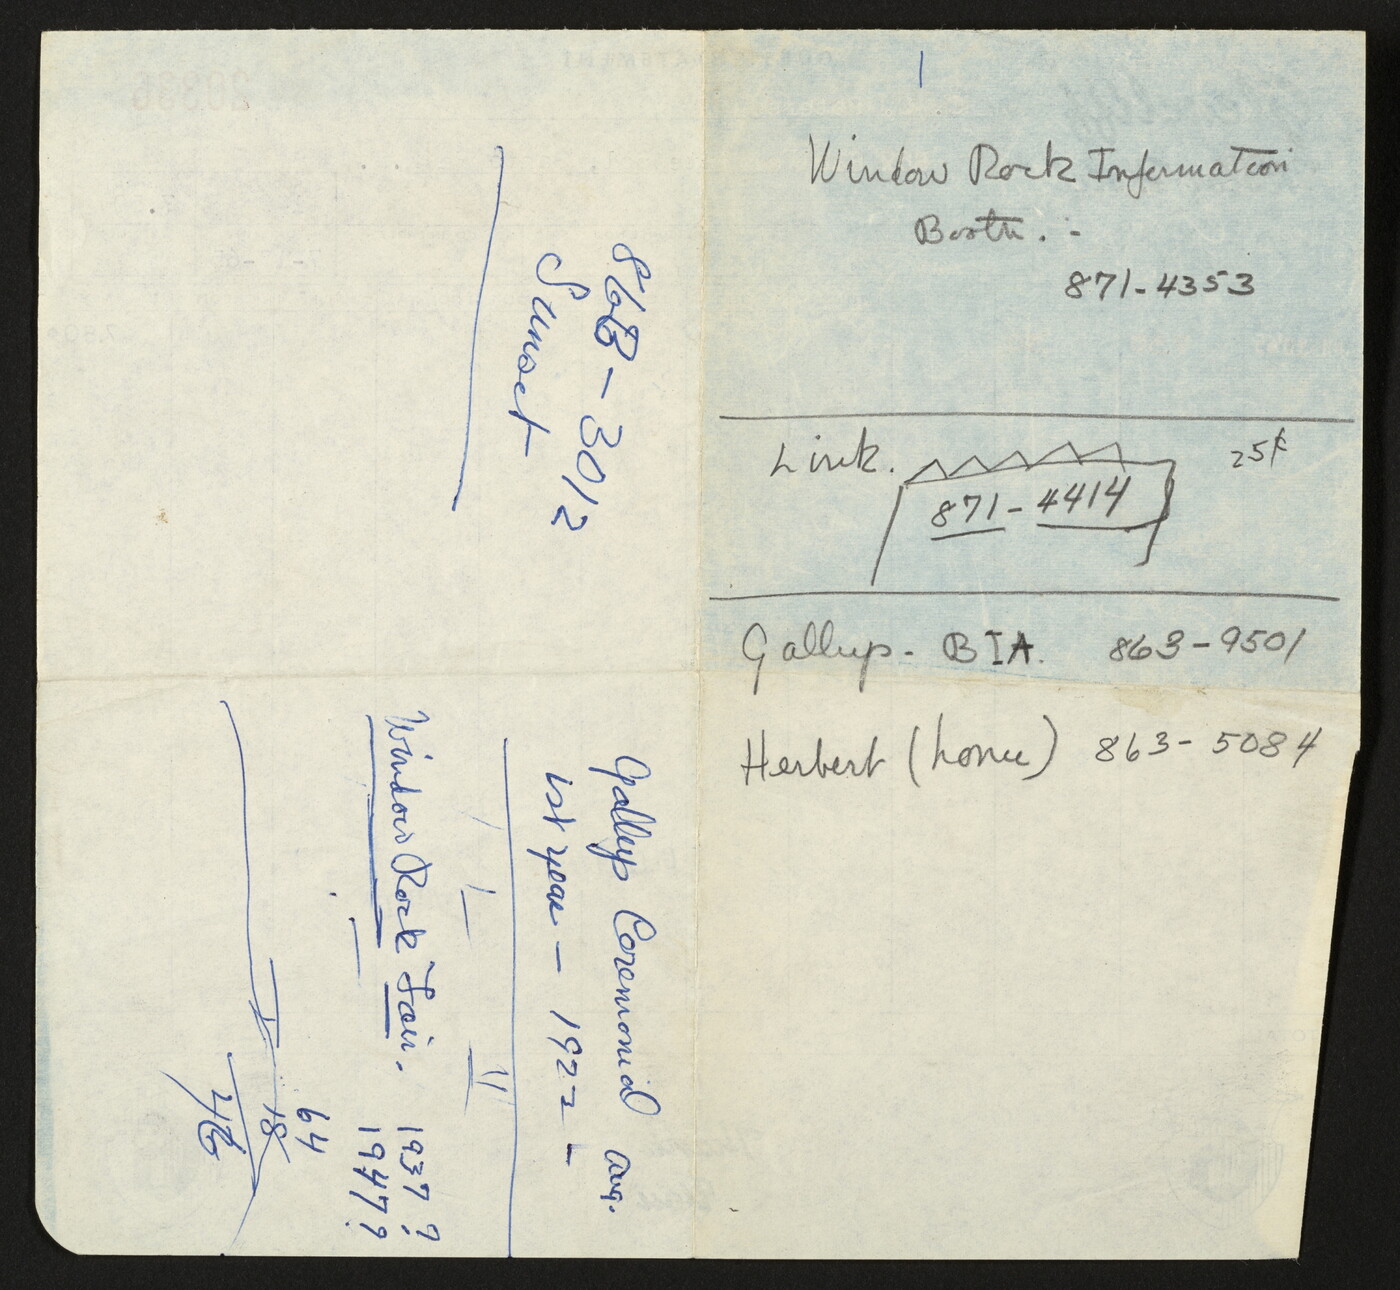 1
Window Rock Information
Booth. -
871-4353
Link.
25¢
871-4414
Gallup - BIA. 863-9501
Herbert (home) 863-5084
86B-3012
Sunset
Gallup Ceremonial Aug.
1st year - 1922 -
I
II
Window Rock Fair. 1937?
1947?
64
18
46